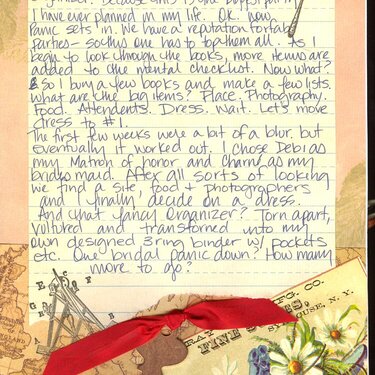 because this is the biggest party
I have ever planned in my life. OK. now
panic sets in. We have a reputation for fab
parties - so this one has to top them all. As I
begin to look through the books, more items are
added to the mental checklist. Now what?
So I buy a few books and make a few lists.
what are the big items? Place. Photography.
Food. Attendents. Dress. Wait. Let's move
dress to #1.
The first few weeks were a bit of a blur. but
eventually it worked out. I chose Debi as
my Matron of honor and Charu as my
brides maid. After all sorts of looking
we find a site, food + photographers
and I finally decide on a dress.
And that fancy organizer? Torn apart,
vultured and transformed into my
own designed 3 ring binder w/ pockets
etc. One bridal panic down? How many
more to go?
MFG. CO.
FINE
SYRACUSE, N. Y.